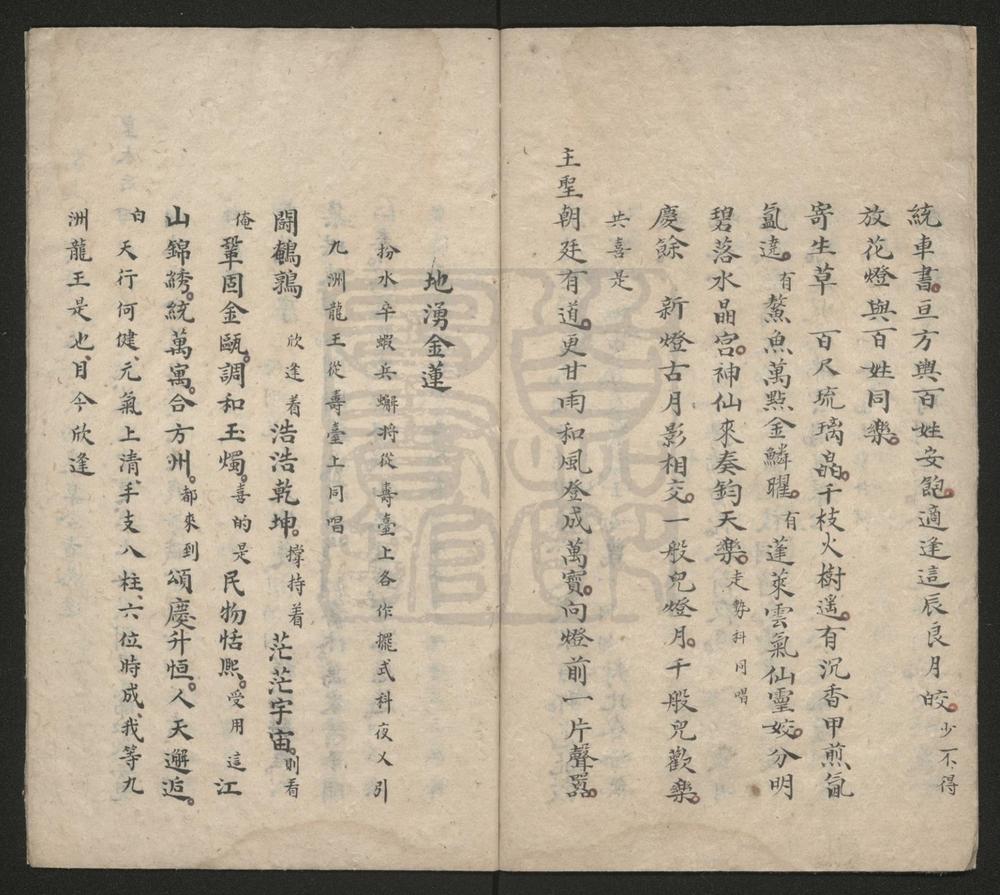 統車書。亘方輿百姓安飽。適逢這辰良月皎。少不得
放花燈與百姓同樂。
寄生草　百尺琉璃晶。千枝火樹遙。有沉香甲煎氤
氳遶。有鰲魚萬點金鱗曜。有蓬萊雲氣仙靈姣。分明
碧落水晶宮。神仙來奏鈞天樂。走勢科同唱
慶餘　新燈古月影相交。一般兒燈月。千般兒歡樂。
共喜是
主聖朝廷有道。更甘雨和風登成萬寶。向燈前一片聲囂。
地湧金蓮
扮水卒蝦兵蠏將從壽臺上各作擺式科夜乂引
九洲龍王從壽臺上同唱
鬪鵪鶉　欣逢着浩浩乾坤。撐持着茫茫宇宙。則看
俺鞏固金甌。調和玉燭。喜的是民物恬熈。受用這江
山錦綉。統萬㝢。合方州。都來到頌慶升恒。人天邂逅。
白　天行何健、元氣上清、手支八柱、六位時成、我等九
洲龍王是也、目今欣逢